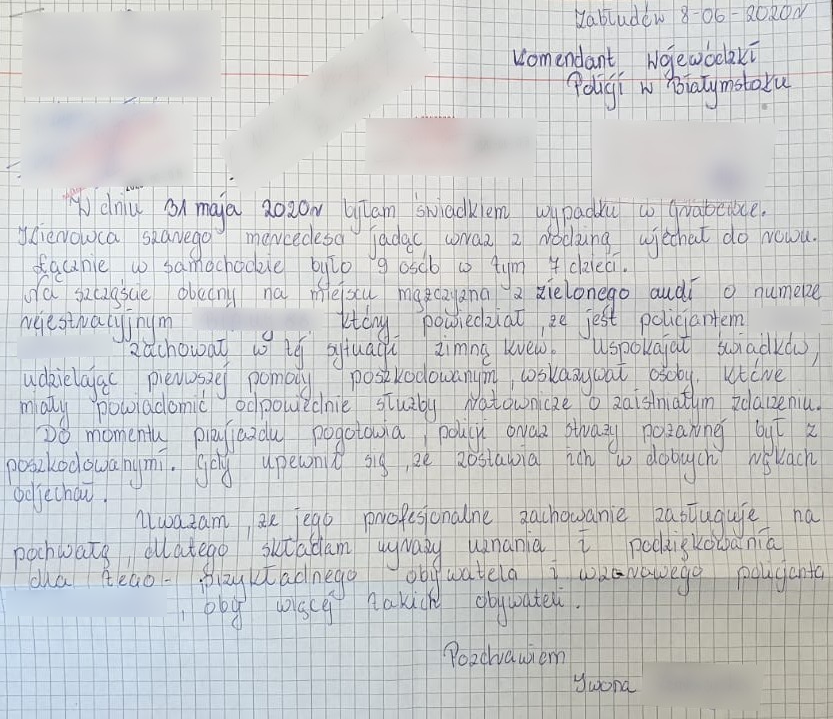 Zabłudów 8-06-2020r
Komendant Wojewódzki
Policji w Białymstoku
W dniu 31 maja 2020r byłam świadkiem wypadku w Grabówce.
Kierowca szarego mercedesa jadąc wraz z rodziną wjechał do rowu.
Łącznie w samochodzie było 9 osób w tym 7 dzieci.
Na szczęście obecny na miejscu mężczyzna z zielonego audi o numerze
rejestracyjnym który powiedział, że jest policjantem
zachował w tej sytuacji zimną krew. Uspokajał świadków,
udzielając pierwszej pomocy poszkodowanym, wskazywał osoby, które
miały powiadomić odpowiednie służby ratownicze o zaistniałym zdarzeniu.
Do momentu przyjazdu pogotowia, policji oraz straży pożarnej był z
poszkodowanymi. Gdy upewnił się, że zostawia ich w dobrych rękach
odjechał.
Uważam, że jego profesjonalne zachowanie zasługuje na
pochwałę, dlatego składam wyrazy uznania i podziękowania
dla tego - przykładnego obywatela i wzorowego policjanta
, oby więcej takich obywateli.
Pozdrawiem
Iwona